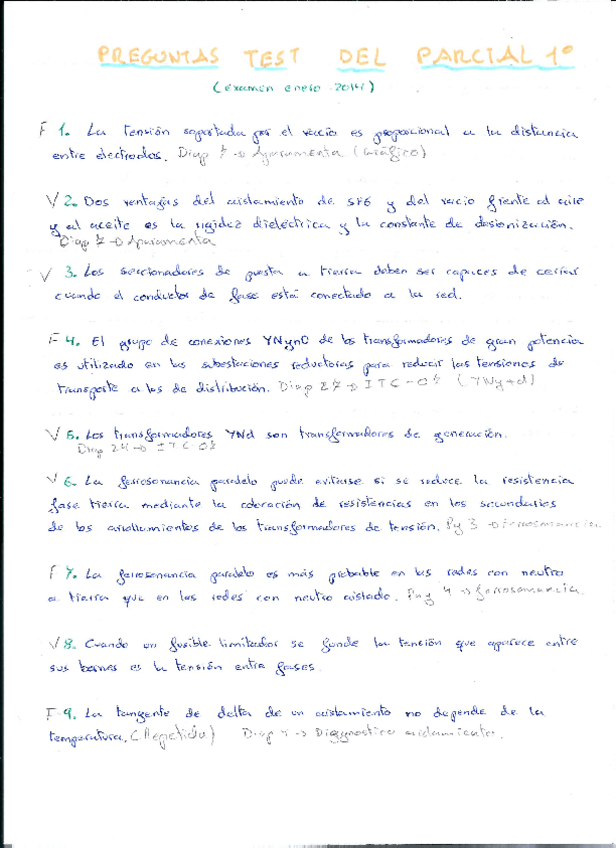 PREGUNTAS TEST DEL PARCIAL 1º
(examen enero 2014)
F 1. La tensión soportada por el vacio es proporcional a la distancia
entre electrodos. Diap 7 → Aparamenta (Gráfico)
V 2. Dos ventajas del aislamiento de SF6 y del vacio frente al aire
y al aceite es la rigidez dieléctrica y la constante de desionización.
Diap 7 → Aparamenta
V 3. Los seccionadores de puesta a tierra deben ser capaces de cerrar
cuando el conductor de fase está conectado a la red.
F 4. El grupo de conexiones YNyn0 de los transformadores de gran potencia
es utilizado en las subestaciones reductoras para reducir las tensiones de
transporte a las de distribución. Diap 27 → ITC-08 (YNy+d)
V 5. Los transformadores YNd son transformadores de generación.
Diap 24 → ITC 08
V 6. La ferrosonancia paralelo puede evitarse si se reduce la resistencia
fase tierra mediante la colocación de resistencias en los secundarios
de los arrollamientos de los transformadores de tensión. Pg 3 → Ferrosonancia
F 7. La ferrosonancia paralelo es más probable en las redes con neutro
a tierra que en las redes con neutro aislado. Pag 4 → ferrosonancia.
V 8. Cuando un fusible limitador se funde la tensión que aparece entre
sus bornes es la tensión entre fases.
F 9. La tangente de delta de un aislamiento no depende de la
temperatura. (Repetida) Diap 4 → Diagnostico aislamiento.